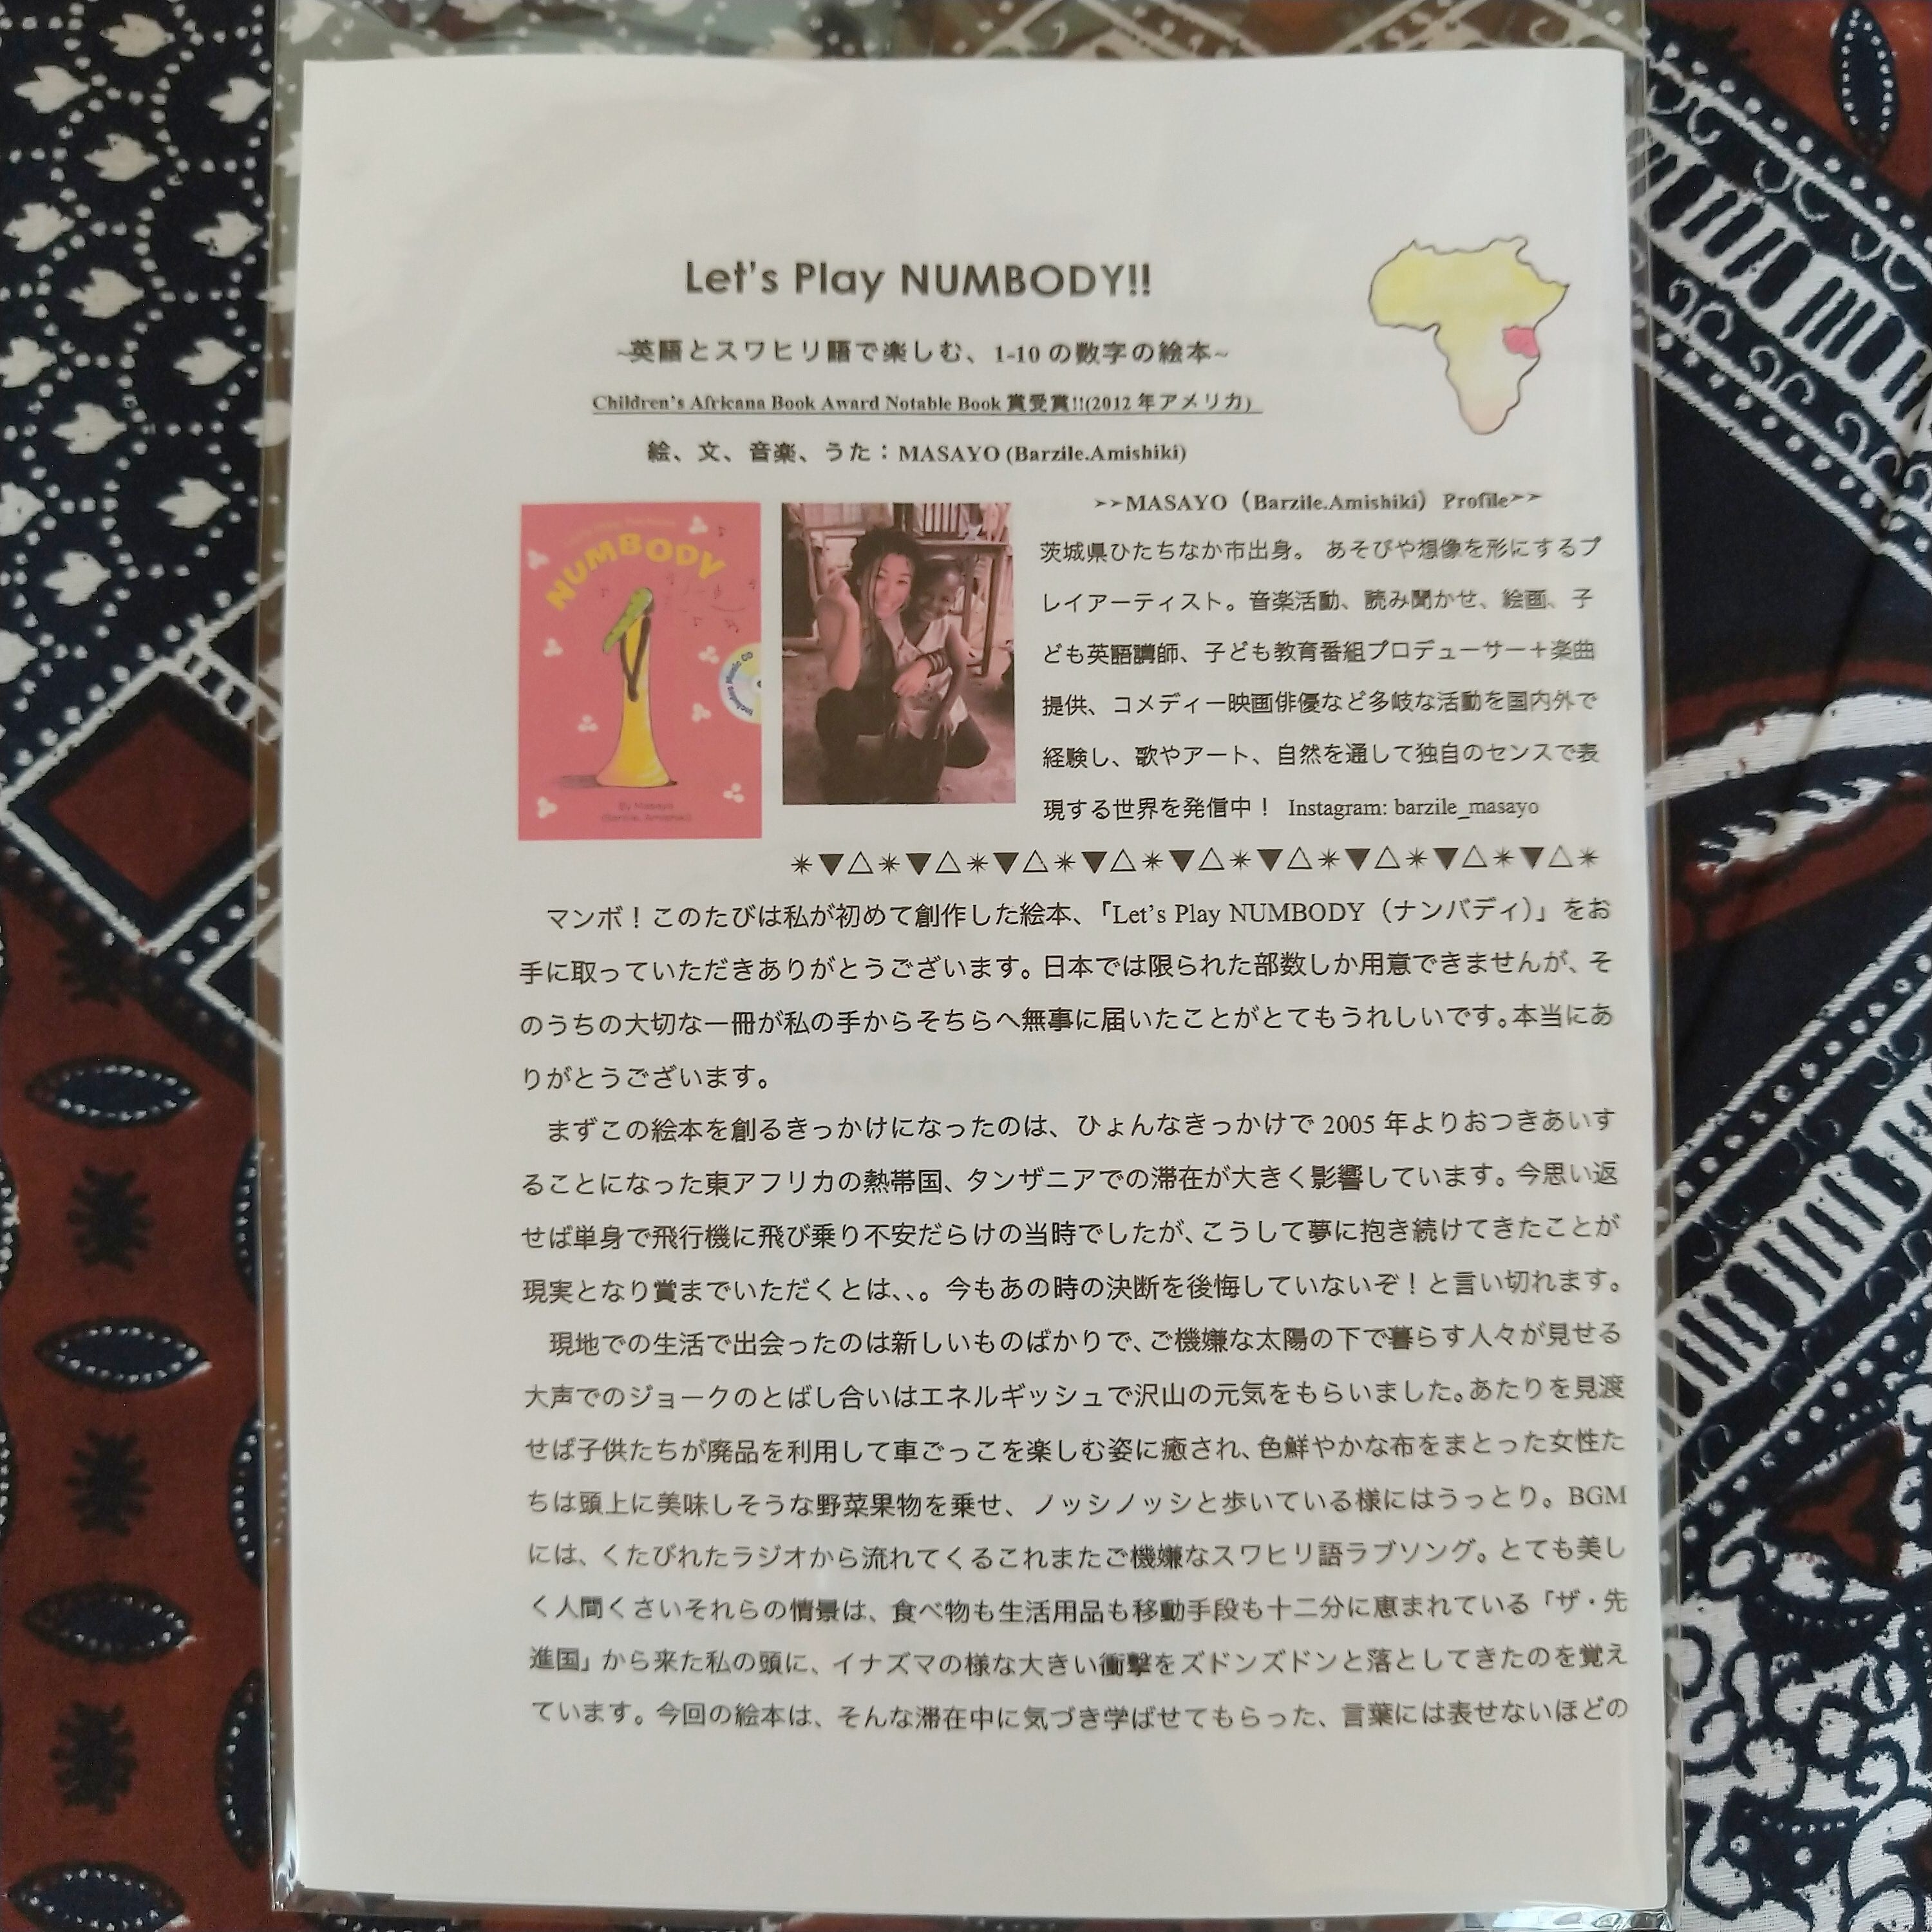 Let's Play NUMBODY!!
~英語とスワヒリ語で楽しむ、1-10 の数字の絵本~
Children's Africana Book Award Notable Book 賞受賞!!(2012 年アメリカ)
絵、文、音楽、うた：MASAYO (Barzile.Amishiki)
NUMBODY
Includes Music CD
By Masayo
(Barzile. Amishiki)
➢➢MASAYO（Barzile.Amishiki） Profile➢➢
茨城県ひたちなか市出身。 あそびや想像を形にするプ
レイアーティスト。音楽活動、読み聞かせ、絵画、子
ども英語講師、子ども教育番組プロデューサー＋楽曲
提供、コメディー映画俳優など多岐な活動を国内外で
経験し、歌やアート、自然を通して独自のセンスで表
現する世界を発信中！ Instagram: barzile_masayo
✳▼△✳▼△✳▼△✳▼△✳▼△✳▼△✳▼△✳▼△✳▼△✳
マンボ！このたびは私が初めて創作した絵本、「Let's Play NUMBODY（ナンバディ）」をお
手に取っていただきありがとうございます。日本では限られた部数しか用意できませんが、そ
のうちの大切な一冊が私の手からそちらへ無事に届いたことがとてもうれしいです。本当にあ
りがとうございます。
まずこの絵本を創るきっかけになったのは、ひょんなきっかけで 2005 年よりおつきあいす
ることになった東アフリカの熱帯国、タンザニアでの滞在が大きく影響しています。今思い返
せば単身で飛行機に飛び乗り不安だらけの当時でしたが、こうして夢に抱き続けてきたことが
現実となり賞までいただくとは、、。今もあの時の決断を後悔していないぞ！と言い切れます。
現地での生活で出会ったのは新しいものばかりで、ご機嫌な太陽の下で暮らす人々が見せる
大声でのジョークのとばし合いはエネルギッシュで沢山の元気をもらいました。あたりを見渡
せば子供たちが廃品を利用して車ごっこを楽しむ姿に癒され、色鮮やかな布をまとった女性た
ちは頭上に美味しそうな野菜果物を乗せ、ノッシノッシと歩いている様にはうっとり。BGM
には、くたびれたラジオから流れてくるこれまたご機嫌なスワヒリ語ラブソング。とても美し
く人間くさいそれらの情景は、食べ物も生活用品も移動手段も十二分に恵まれている「ザ・先
進国」から来た私の頭に、イナズマの様な大きい衝撃をズドンズドンと落としてきたのを覚え
ています。今回の絵本は、そんな滞在中に気づき学ばせてもらった、言葉には表せないほどの